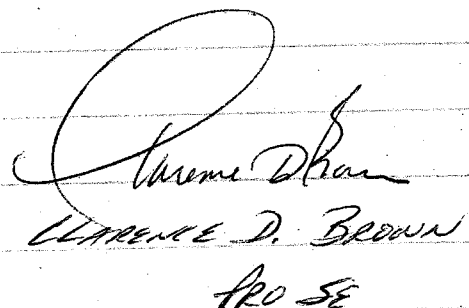 Clarence D Brown
CLARENCE D. BROWN
PRO SE